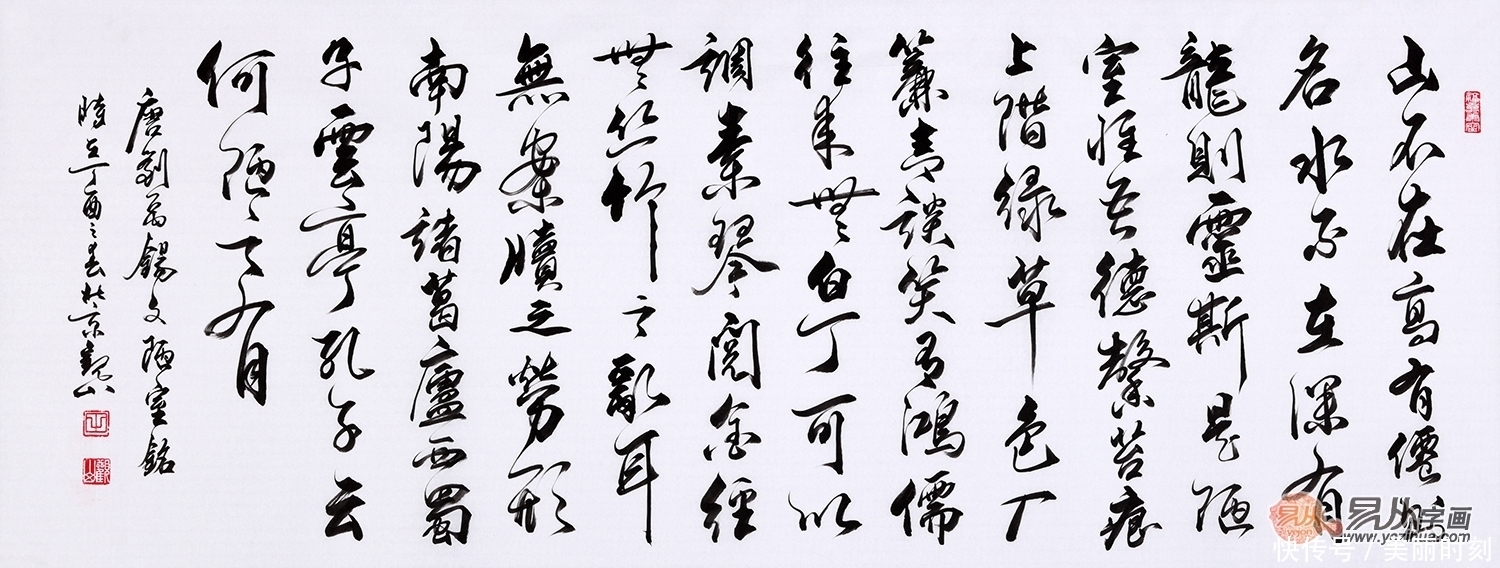 山不在高有僊則
名水不在深有
龍則靈斯是陋
室惟吾德馨苔痕
上階緑草色入
簾青談笑有鴻儒
往来無白丁可以
調素琴閲金經
無丝竹之亂耳
無案牘之勞形
南陽諸葛廬西蜀
子雲亭孔子云
何陋之有
唐劉禹錫文陋室銘
時在丁酉之春於京觀山
易从字画
www.yczihua.com
快传号 / 美丽时刻